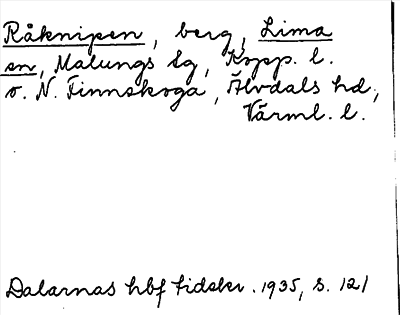 Råknipen, berg, Lima
sn, Malungs lg, Kopp. l.
o. N. Finnskoga, Älvdals hd,
Värml. l.
Dalarnas hbf tidskr. 1935, s. 121